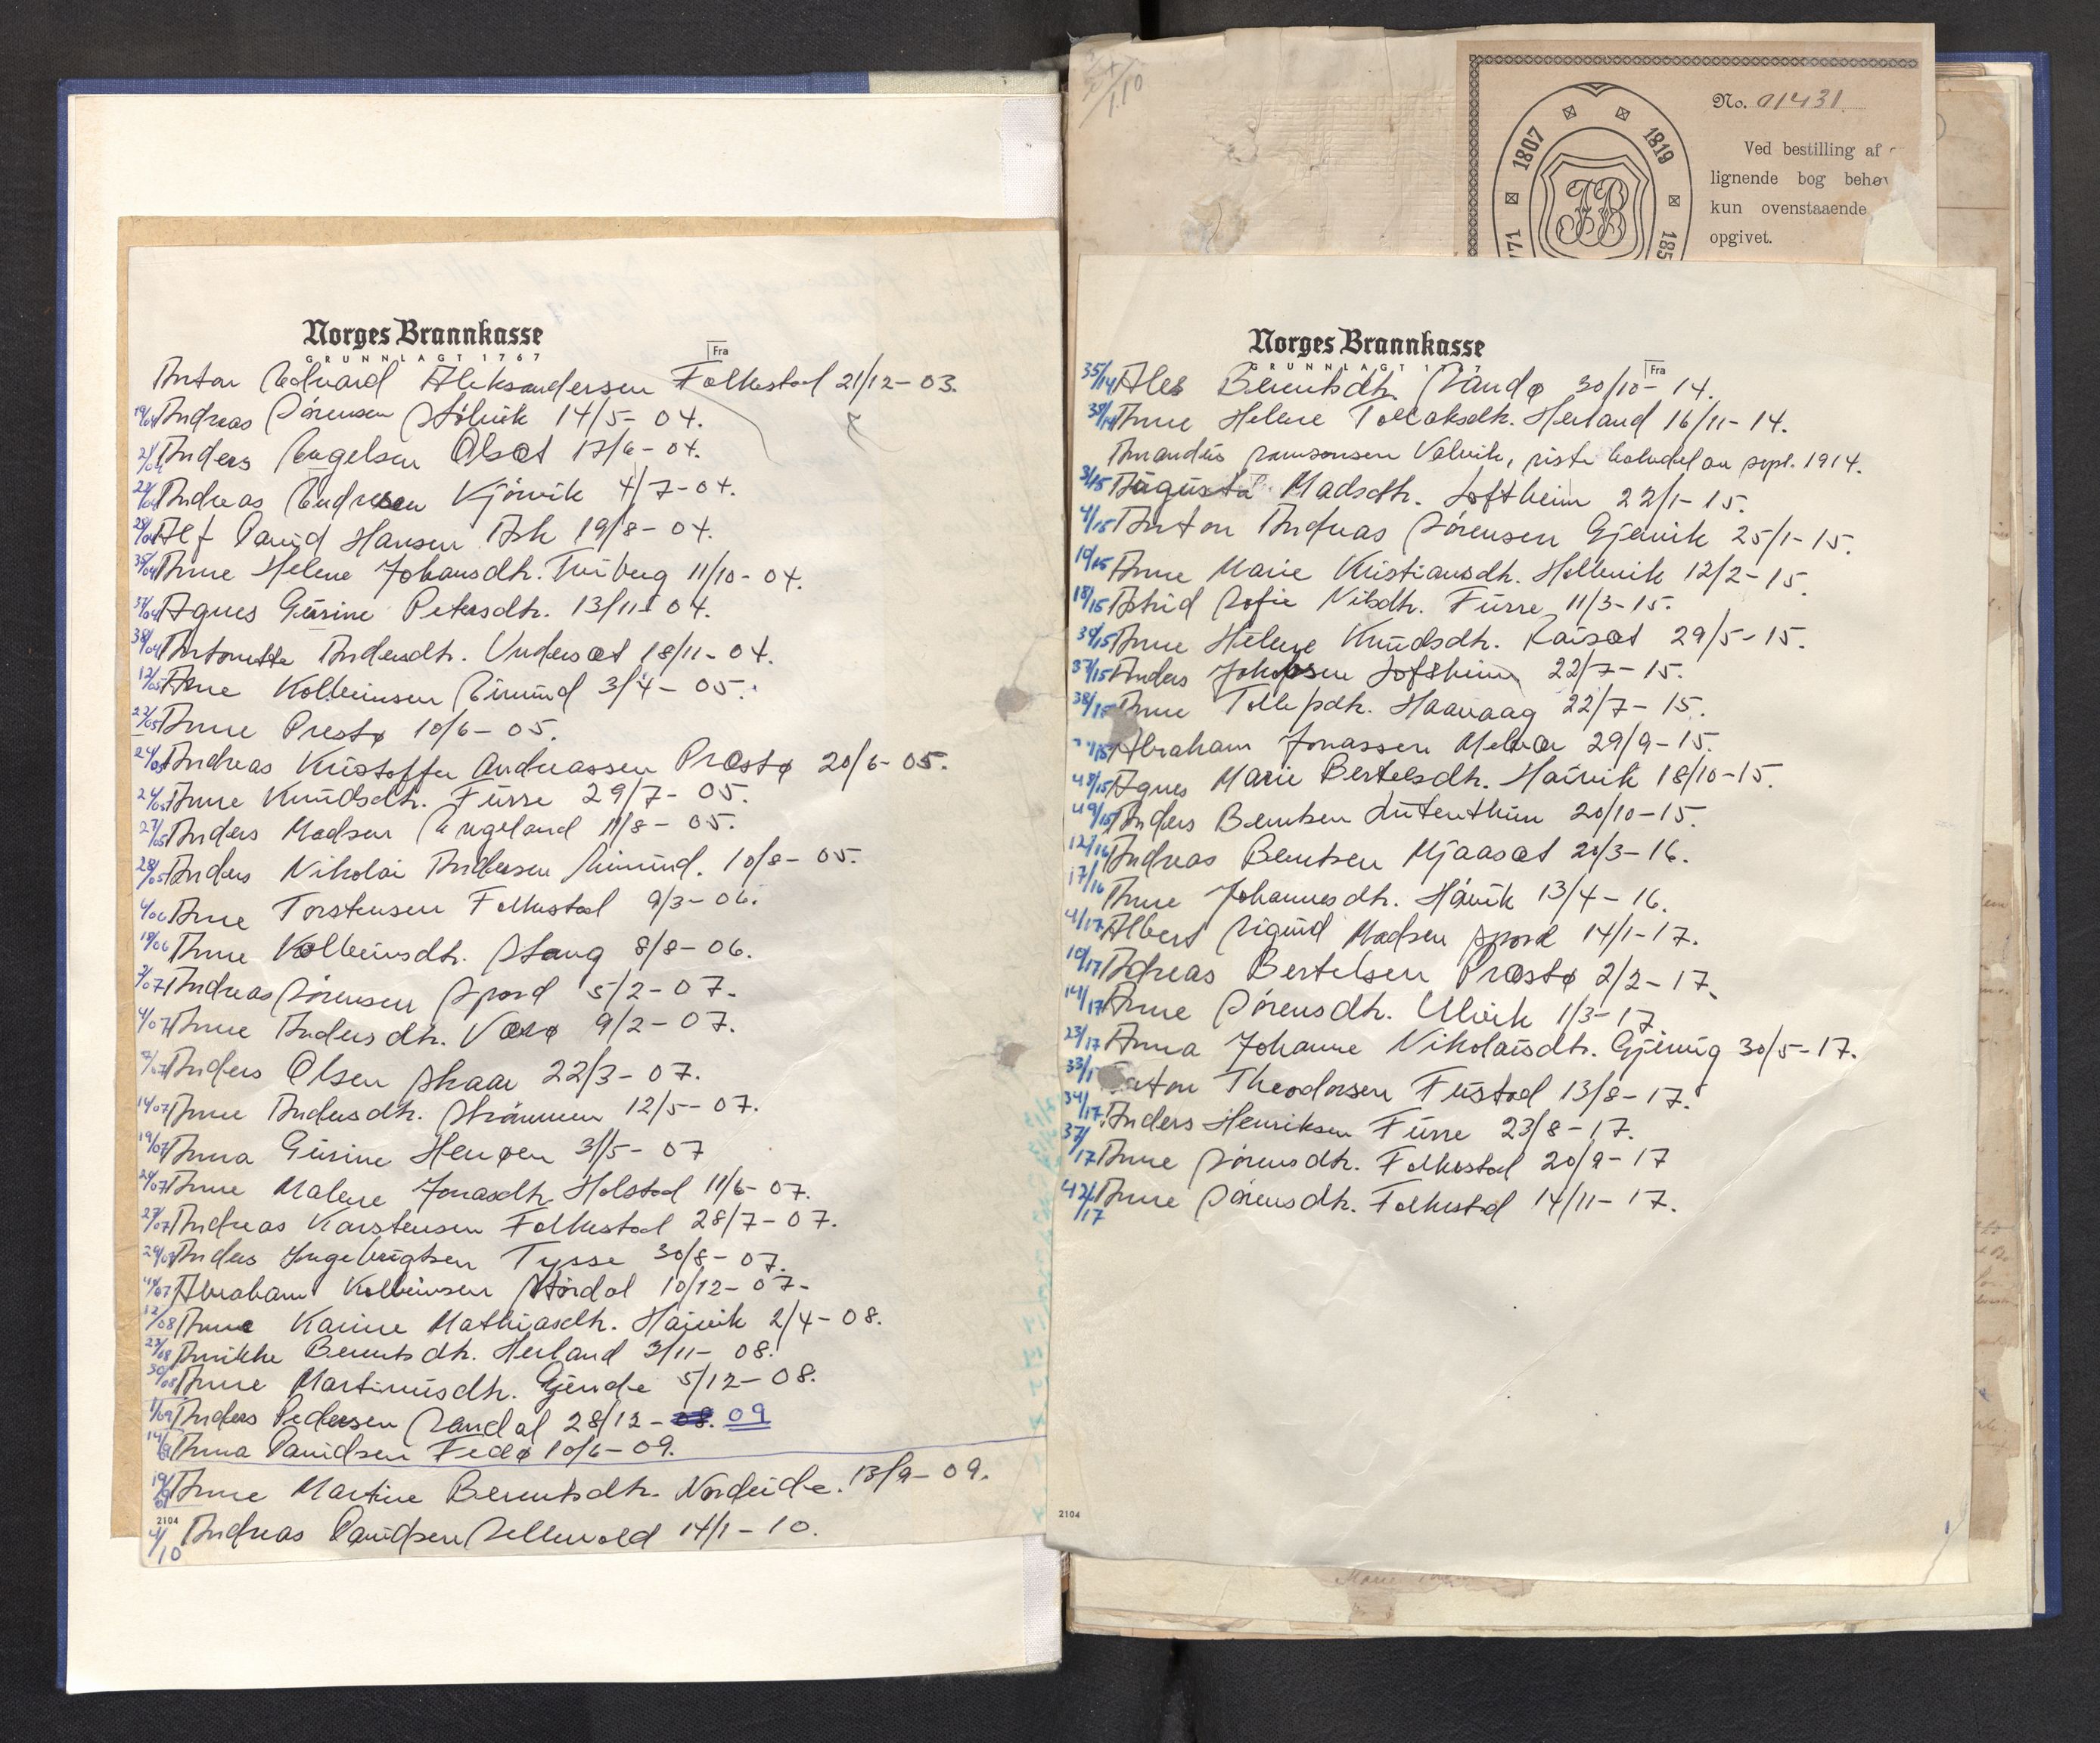 Norges Brannkasse
GRUNNLAGT 1767
Fra
Anton Edvard Aleksandersen Folkestad 21/12-03.
19/04 Andreas Sørensen Stølevik 14/5-04.
21/04 Anders Engelsen Olset 17/6-04.
Andreas Endresen Kjørvik 4/7-04.
28/04 Alf David Hansen Ask 19/8-04.
35/04 Anne Helene Johansdtr. Tviberg 11/10-04.
37/04 Agnes Gurine Petersdtr. 13/11-04.
38/04 Antonette Andersdtr. Underset 18/11-04.
12/05 Arne Kolbeinsen Eimind 3/4-05.
22/05 Anne Prestø 10/6-05.
24/05 Andreas Kristoffer Andreassen Præstø 20/6-05.
26/05 Anne Knudsdtr. Furre 29/7-05.
27/05 Anders Madsen Engeland 11/8-05.
28/05 Anders Nikolai Andersen Eimind. 10/8-05.
4/06 Arne Torstensen Folkestad 9/3-06.
18/06 Anne Kolbeinsdtr. Stang 8/8-06.
3/07 Andreas Sørensen Spord 5/2-07.
4/07 Anne Andersdtr. Værø 9/2-07.
7/07 Anders Olsen Skaar 22/3-07.
14/07 Anne Andersdtr. Strømmen 12/5-07.
19/07 Anna Gurine Hengen 31/5-07
20/07 Anne Malene Jonasdtr. Holstad 11/6-07.
27/07 Andreas Karstensen Folkestad 28/7-07.
29/07 Anders Ingebrigtsen Tysse 30/8-07.
Abraham Kolbeinsen Størdal 10/12-07-
12/08 Anne Karine Mathiasdtr. Håvik 2/4-08.
27/08 Annikke Berentsdtr. Herland 3/11-08.
30/08 Anne Martinusdtr. Gjerde 5/12-08.
1/09 Anders Pedersen Sandal 28/12-08. 09
14/9 Anna Davidsen Fedø 10/6-09.
19/09 Anne Martine Berentsdtr. Nordeide. 13/9-09.
2104
4/10 Andreas Davidsen Sellevold 14/1-10.
No. 01431
Ved bestilling af
lignende bog behov
kun ovenstaaende
opgivet.
1807
1819
771
185
JB
Norges Brannkasse
GRUNNLAGT 1767
Fra
35/14 Ales Berentsdtr. Sandø 30/10-14.
38/14 Anne Helene Tollaksdtr. Herland 16/11-14.
Amandus Samsonsen Valvik, siste halvdel av sept. 1914.
3/15 Augusta Madsdtr. Loftheim 22/1-15.
4/15 Anton Andreas Sørensen Gjervik 25/1-15.
10/15 Anne Marie Kristiansdtr. Hellevik 12/2-15.
18/15 Astrid Sofie Nilsdtr. Furre 11/3-15.
30/15 Anne Helene Knudsdtr. Raiset 29/5-15.
37/15 Anders Jakobsen Loftheim 22/7-15.
38/15 Anne Tollefsdtr. Haavaag 22/7-15.
Abraham Jonassen Melvær 29/9-15.
48/15 Agnes Marie Bertelsdtr. Håvik 18/10-15.
49/15 Anders Berntsen Lutentun 20/10-15.
12/16 Andreas Berntsen Mjaaset 20/3-16.
17/16 Anne Johannesdtr. Håvik 13/4-16.
4/17 Albert Sigurd Madsen Spord 14/1-17.
10/17 Andreas Bertelsen Præstø 2/2-17.
14/17 Anne Sørensdtr. Ulvik 1/3-17
23/17 Anna Johanne Nikolaisdtr. Gjervig 30/5-17.
33/1 Anton Theodorsen Fristad 13/8-17.
34/17 Anders Henriksen Furre 23/8-17.
37/17 Anne Sørensdtr. Folkestad 20/9-17
42/17 Anne Sørensdtr. Folkestad 14/11-17.
2104